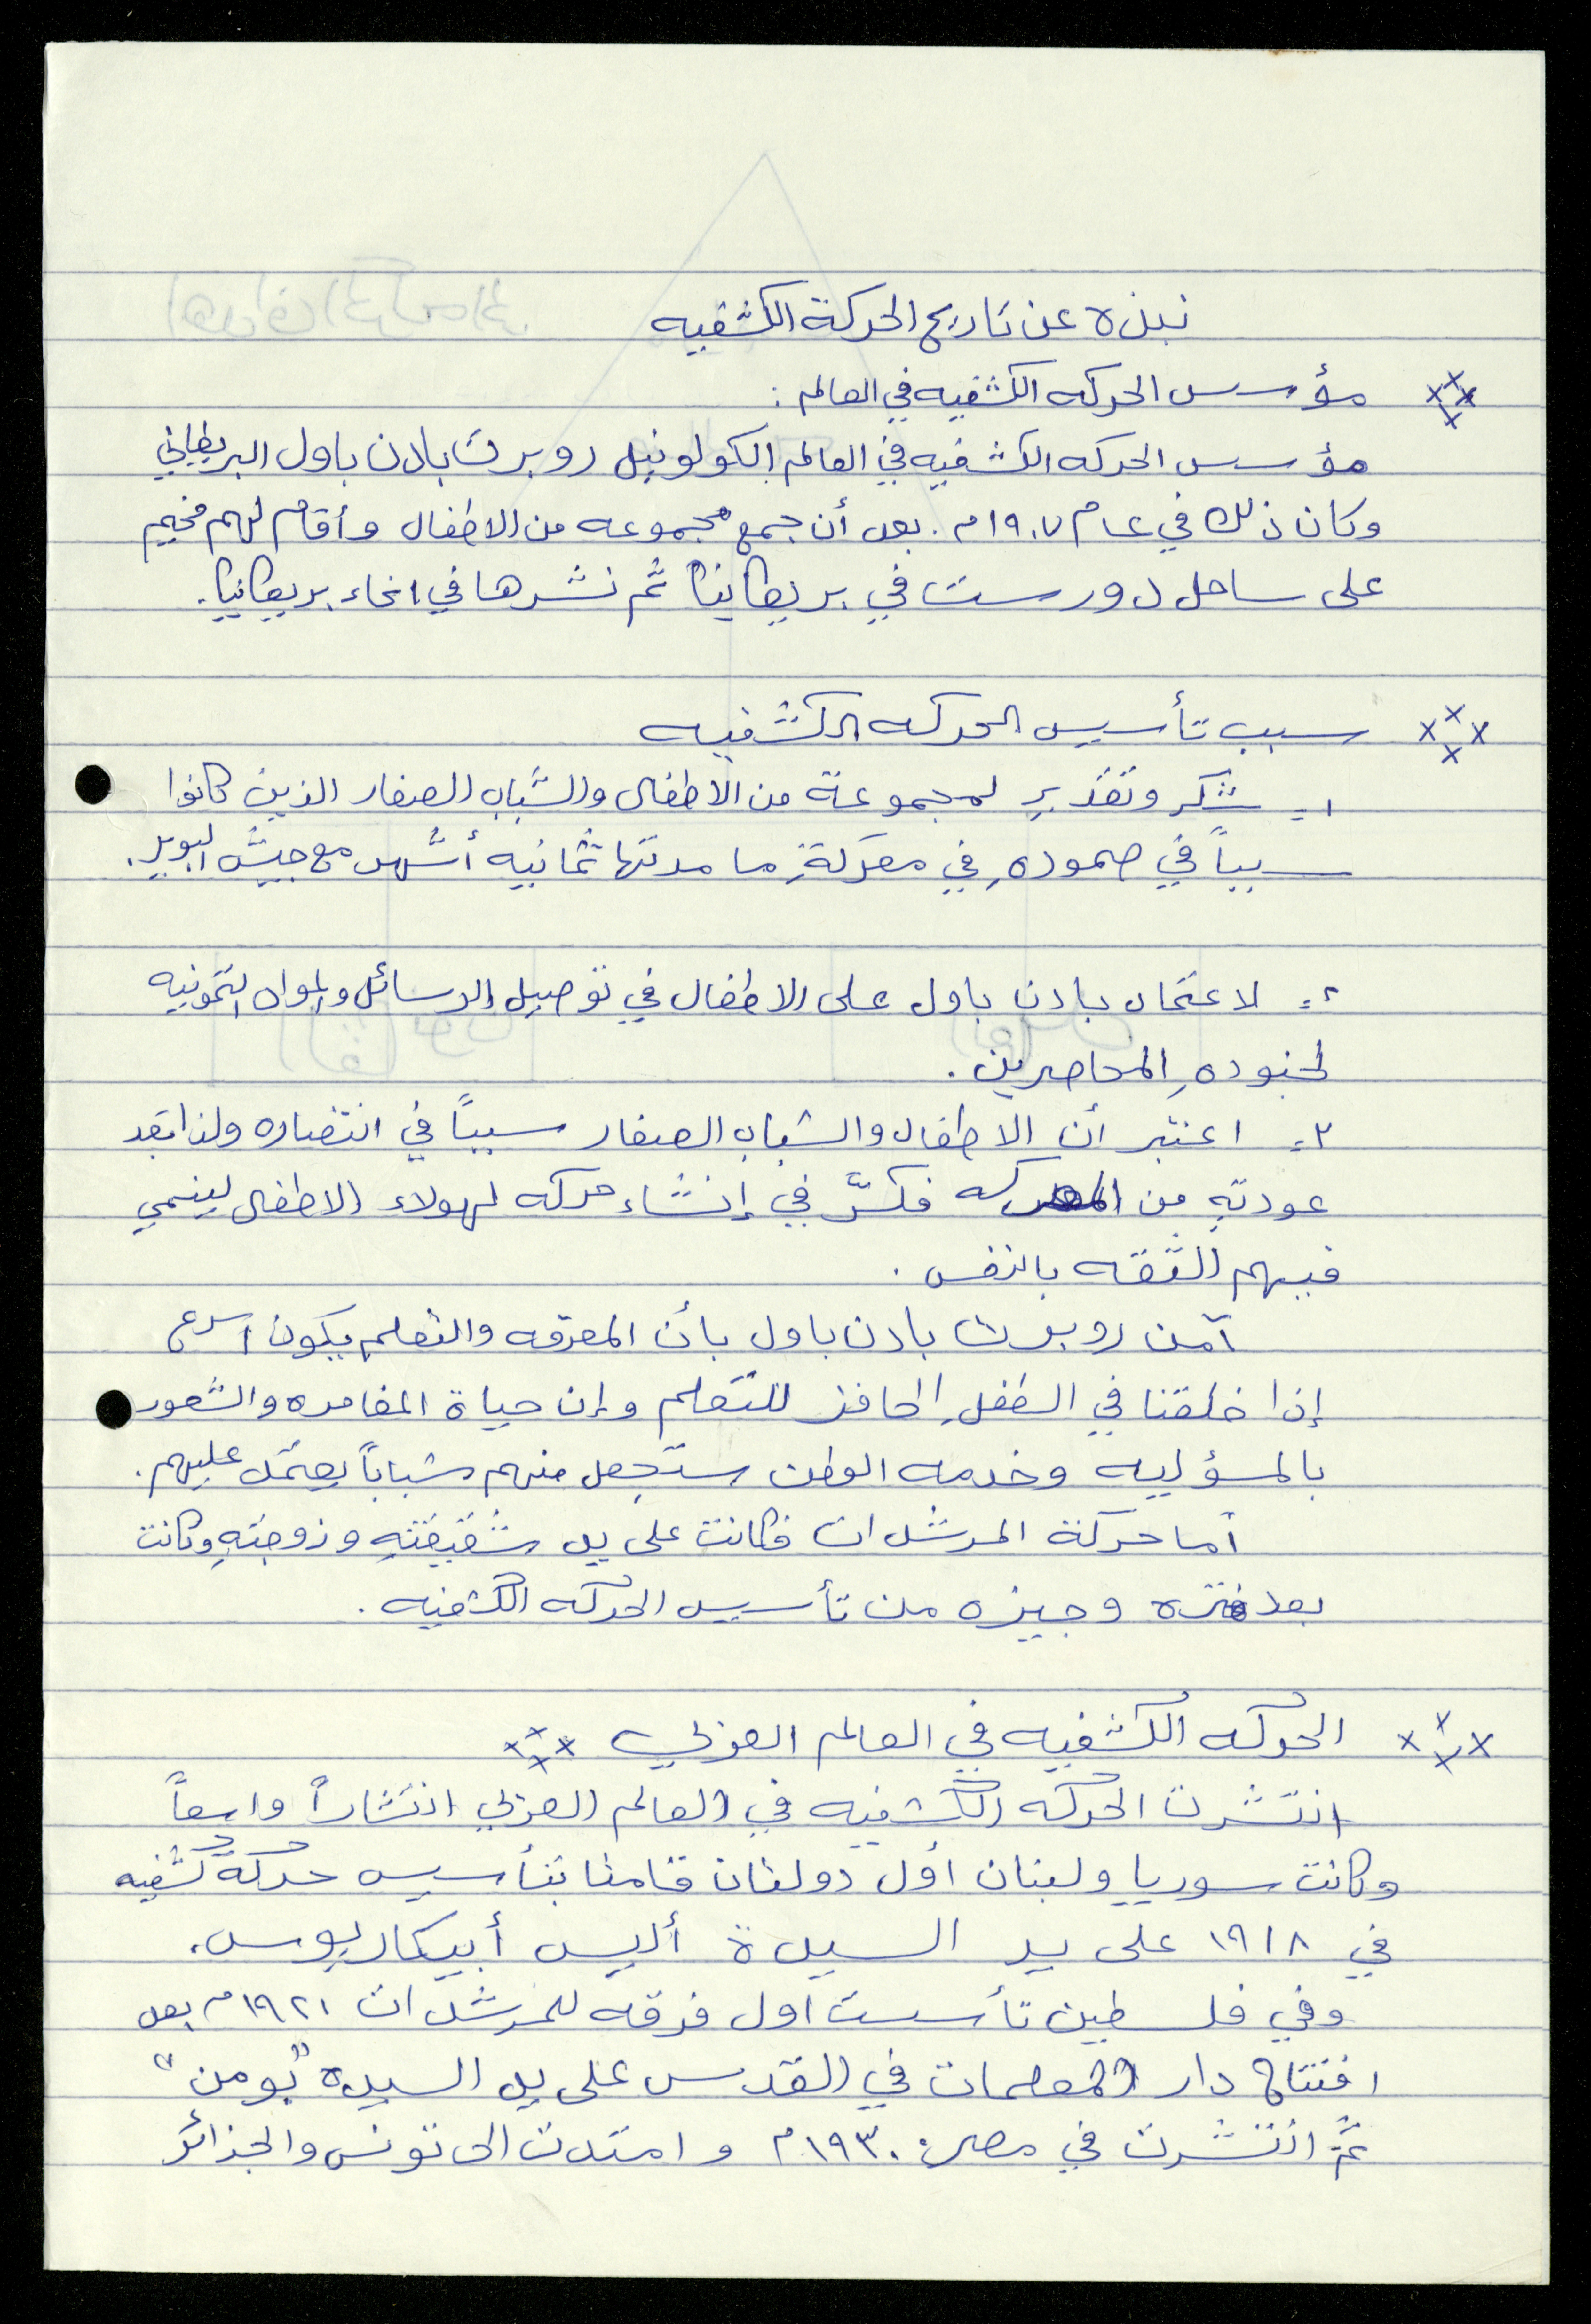 نبذه عن تاريخ الحركة الكشفيه
مؤسس الحركه الكشفيه في العالم :
مؤسس الحركه الكشفيه في العالم الكولونيل روبرت بادن باول البريطاني
وكان ذلك في عام ١٩٠٧م. بعد أن جمع مجموعه من الاطفال وأقام لهم مخيم
على ساحل دورست في بريطانيا ثم نشرها في انحاء بريطانيا.
سبب تأسيس الحركه الكشفيه
١ـ شكر وتقدير لمجموعة من الاطفال والشباب الصغار الذين كانوا
سبباً في صمودهِ في معركةِ ما مدتها ثمانيه أشهر مع جيش البوير.
٢ـ لاعتماد بادن باول على الاطفال في توصيل الرسائل والمواد التموينيه
لجنودهِ المحاصرين.
٣ـ اعتبر أن الاطفال والشباب الصغار سبباً في انتصاره ولذا بعد
عودتهِ من المعركه فكرّ في إنشاء حركه لهولاء الاطفال لينمي
فيهم الثقه بالنفس.
آمن روبرت بادن باول بأن المعرفه والتعلم يكون اسرع
إذا خلقنا في الطفل الحافز للتعلم وإن حياة المغامره والشعور
بالمسؤليه وخدمه الوطن ستجعل منهم شباباً يعتمد عليهم.
أما حركة المرشدات فكانت على يد شقيقتهِ وزوجتهِ وكانت
بعد فتره وجيزه من تأسيس الحركه الكشفيه.
الحركه الكشفيه في العالم العربي
انتشرت الحركه الكشفيه في العالم العربي انتشاراً واسعاً
وكانت سوريا ولبنان اول دولتان قامتا بتأسيس حركة كشفيه
في ١٩١٨ على يد السيدة أليس أبيكاريوس.
وفي فلسطين تأسست اول فرقه للمرشدات ١٩٢١م بعد
افتتاح دار المعلمات في القدس على يد السيده "بومن"
ثمَّ انتشرت في مصر: ١٩٣٠م وامتدت الى تونس والجزائر